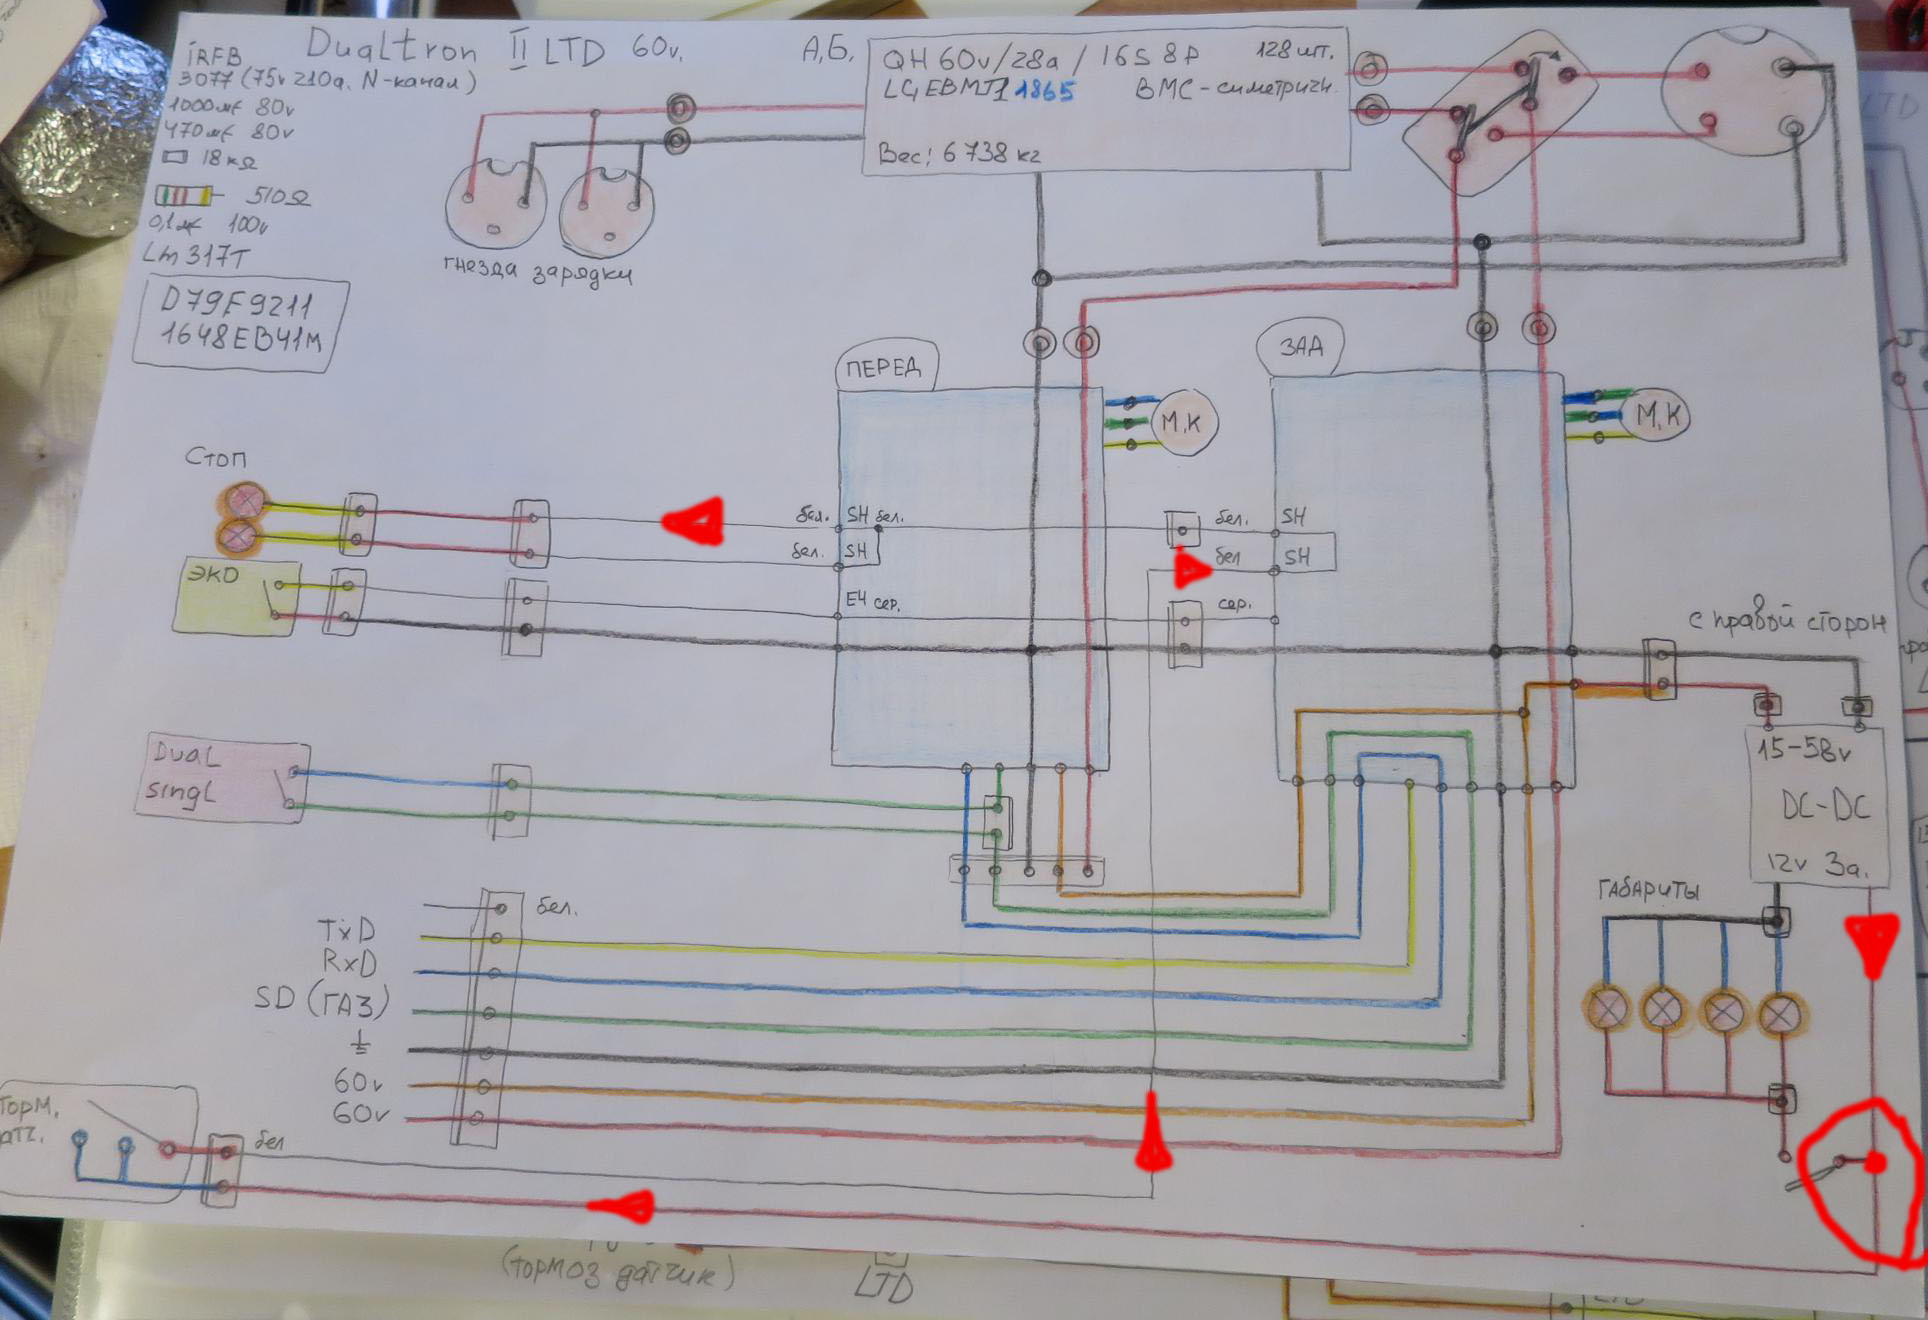 Dualtron II LTD 60v.
А,Б.
iRFB
3077 (75v 210a. N-канал)
1000мf 80v
470мf 80v
18кΩ
510Ω
0,1мf 100v
Lm317T
D79F9211
1648EB41M
QH 60v/28a / 16S 8P 128шт.
LGEBMJ1 1865 BMC-симетричн.
Вес: 6 738 кг
гнезда зарядки
ПЕРЕД
ЗАД
М,К
М,К
Стоп
бел. SH бел.
бел. SH
бел. SH
бел SH
ЭКО
Е4 сер.
сер.
с правой сторон
Dual
singL
15-58v
DC-DC
12v 3a.
ГАБАРИТЫ
бел.
TxD
RxD
SD (ГАЗ)
60v
60v
торм.
бел
(тормоз датчик)
LTD
LTD